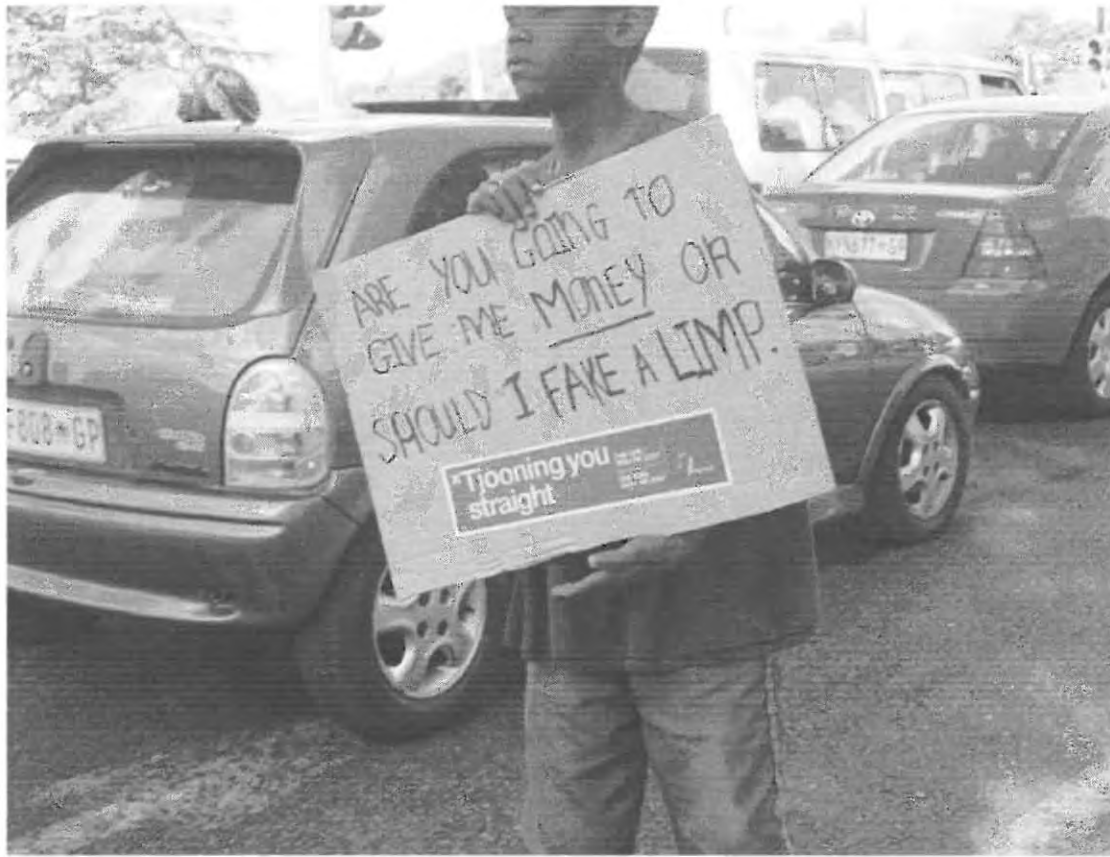 ARE YOU GOING TO
GIVE ME MONEY OR
SHOULD I FAKE A LIMP.
*Tjooning you
straight